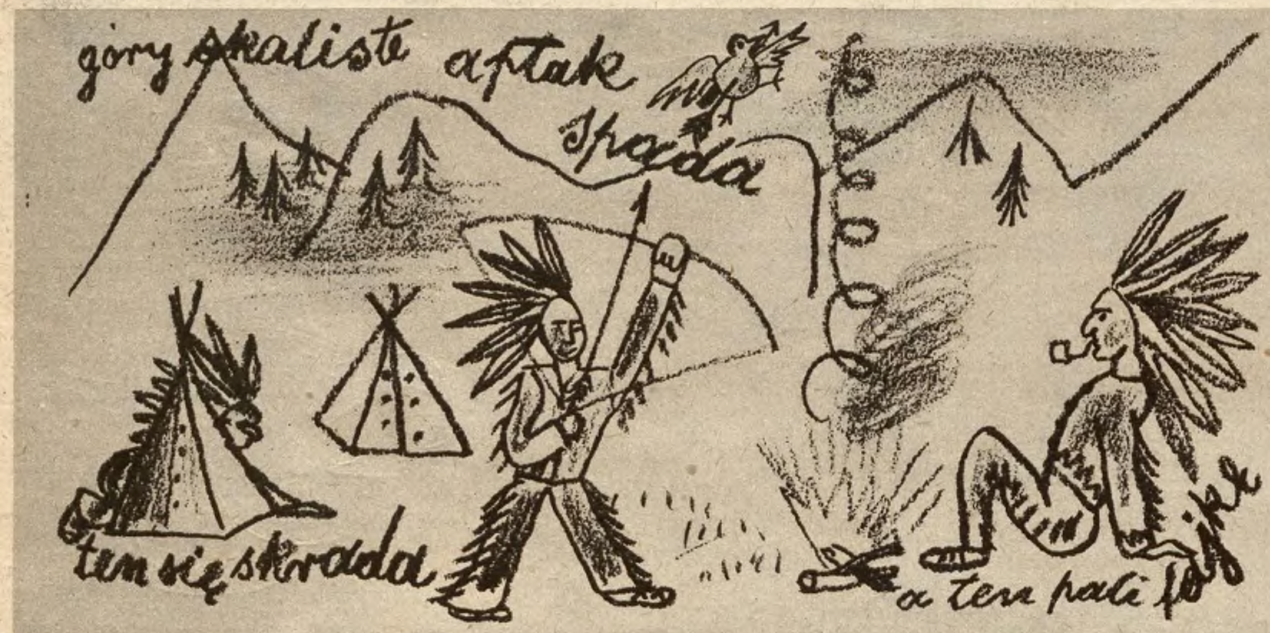 góry skaliste
a ptak
spada
ten się skrada
a ten pali fajkę